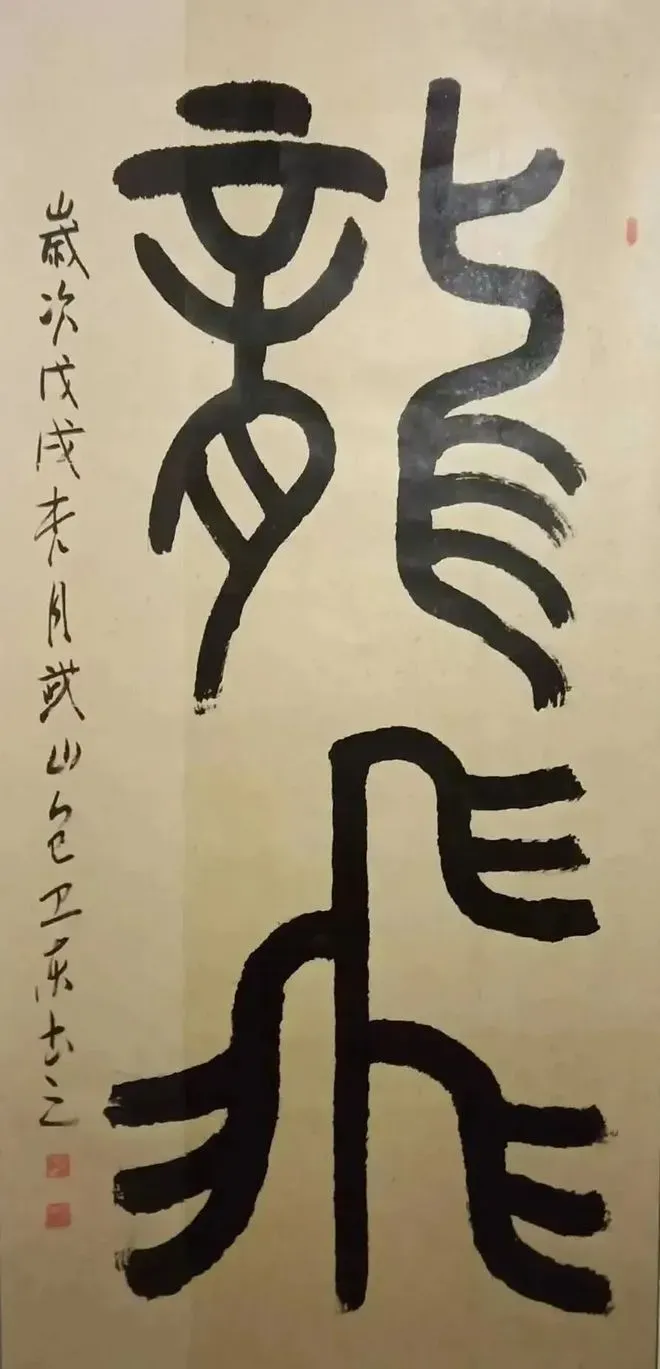 龍飛
歲次戊戌春月山包卫东书之